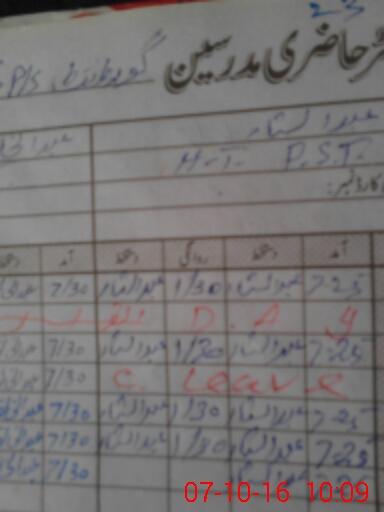 23
حاضری مدرسین گورنمنٹ P/S
عبدالستار
H.T. P.S.T.
کارڈ نمبر:
آمد دستخط روانگی دستخط آمد
7-25 عبدالستار 1/30 عبدالستار 7/30
D A Y
7-25 عبدالستار 1/30 عبدالستار 7/30
C. Leave 7/30
7-25 عبدالستار 1/30 عبدالستار 7/30
7-25 عبدالستار 1/30 عبدالستار 7/30
7/30
07-10-16 10:09